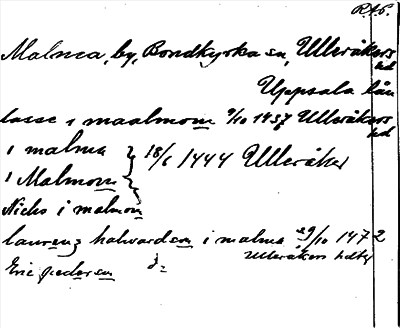 R.A.S.
Malma, by, Bondkyrka sn, Ulleråkers hd
Uppsala län
lasse i maalmom 9/10 1437 Ulleråkers hd
i malma } 18/6 1444 Ulleråker
i Malmom
Niclis i malmom
laurenz halwardson i malma 29/10 1472
Eric pederson d:o Ulleråkers hdtg